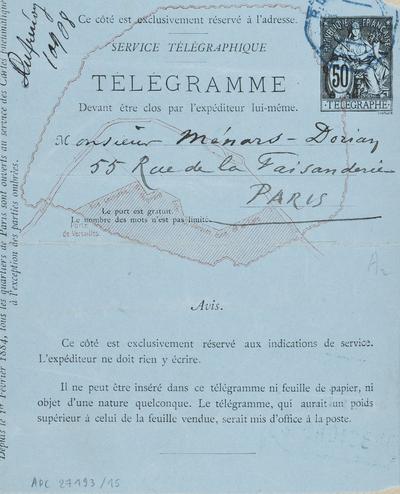 Ce côté est exclusivement réservé à l'adresse.
SERVICE TÉLÉGRAPHIQUE
TÉLÉGRAMME
Devant être clos par l'expéditeur lui-même.
RÉPUBLIQUE FRANÇAISE
50
TÉLÉGRAPHE
Monsieur Ménars-Dorian
55 Rue de la Faisanderie
PARIS
Le port est gratuit.
Le nombre des mots n'est pas limité.
Porte
de Versailles
Depuis le 1er Février 1884, tous les quartiers de Paris sont ouverts au service des Cartes pneumatiques
à l'exception des parties ombrées.
Avis.
Ce côté est exclusivement réservé aux indications de service.
L'expéditeur ne doit rien y écrire.
Il ne peut être inséré dans ce télégramme ni feuille de papier, ni
objet d'une nature quelconque. Le télégramme, qui aurait un poids
supérieur à celui de la feuille vendue, serait mis d'office à la poste.
A2
APC 27193/15